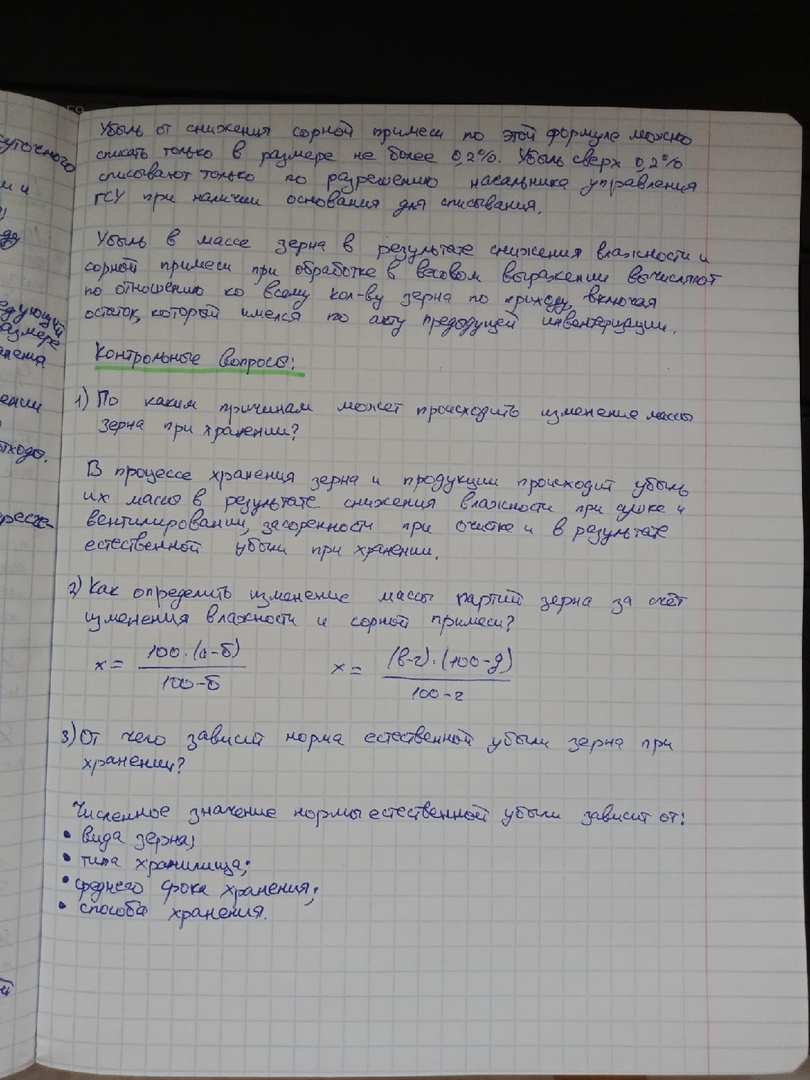 суточного
Убыль от снижения сорной примеси по этой формуле можно
списать только в размере не более 0,2%. Убыль сверх 0,2%
списывают только по разрешению начальника управления
ГСУ при наличии основания для списывания.
Убыль в массе зерна в результате снижения влажности и
сорной примеси при обработке в весовом выражении вычисляют
по отношению ко всему кол-ву зерна по приходу, включая
остаток, который имелся по акту предыдущей инвентаризации.
Контрольные вопросы:
1) По каким причинам может происходить изменение массы
зерна при хранении?
В процессе хранения зерна и продукции происходит убыль
их массы в результате снижения влажности при сушке и
вентилировании, засоренности при очистке и в результате
естественной убыли при хранении.
2) Как определить изменение массы партий зерна за счёт
изменения влажности и сорной примеси?
x = 100·(а-б) / 100-б   x = (в-г)·(100-д) / 100-г
3) От чего зависит норма естественной убыли зерна при
хранении?
Численное значение нормы естественной убыли зависит от:
• вида зерна;
• типа хранилища;
• среднего срока хранения;
• способа хранения.